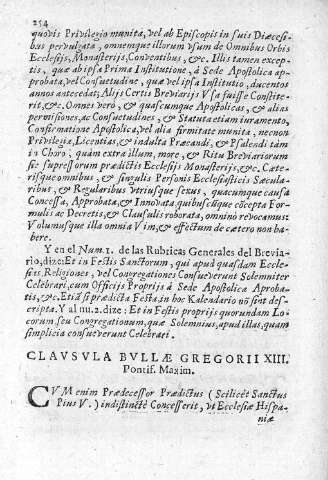 254
quovis Privilegio munita, vel ab Episcopis in suis Diœcesi-
bus pervulgata, omnemque illorum vsum de Omnibus Orbis
Ecclesijs, Monasterijs, Conventibus, &c. Illis tamen excep-
tis, quæ ab ipsa Prima Institutione, à Sede Apostolica ap-
probata, vel Consuetudine, quæ vel ipsa Institutio, ducentos
annos antecedat; Alijs Certis Breviarijs Vsa fuisse Constite-
rit, &c. Omnes verò, & quascumque Apostolicas, & alias
permissiones, ac Consuetudines, & Statuta etiam iuramento,
Confirmatione Apostolica, vel alia firmitate munita, necnon
Privilegia, Licentias, & indulta Præcandi, & Psalendi tàm
in Choro, quàm extra illum, more, & Ritu Breviariorum
sic supressorum prædictis Ecclesijs Monasterijs, &c. Cæte-
risque omnibus, & singulis Personis Ecclesiasticis Sæcula-
ribus, & Regularibus vtriusque sexus, quacumque causa
Concessa, Approbata, & Innovata quibuscũque cõcepta For-
mulis ac Decretis, & Clausulis roborata, omninò revocamus:
Volumusque illa omnia Vim, & effectum de cætero non ha-
bere.
Y en el Num. 1. de las Rubricas Generales del Brevia-
rio, dize: Et in Festis Sanctorum, qui apud quasdam Eccle-
sias, Religiones, vel Congregationes Consueverunt Solemniter
Celebrari, cum Officijs Proprijs à Sede Apostolica Aprobа-
tis, &c. Etiã si prædicta Festa, in hoc Kalendario nõ sint des-
cripta. Y al nu. 2. dize: Et in Festis proprijs quorundam Lo-
corum seu Congregationum, quæ Solemnius, apud illas, quam
simplicia consueverunt Celebrari.
CLAVSVLA BVLLÆ GREGORII XIII.
Pontif. Maxim.
CVM enim Prædecessor Prædictus (Scilicèt Sanctus
Pius V.) indistinctè Concesserit, vt Ecclesiæ Hispa-
niæ